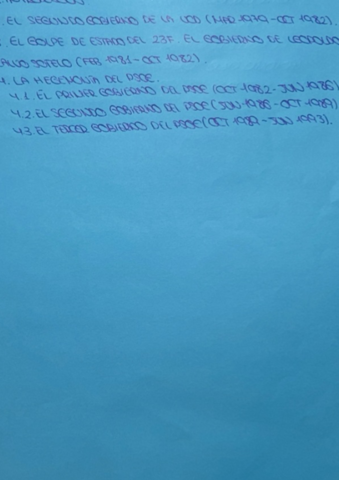 . EL SEGUNDO GOBIERNO DE LA UCD (MAR 1979 - OCT 1982).
. EL GOLPE DE ESTADO DEL 23F. EL GOBIERNO DE LEOPOLDO
CALVO SOTELO (FEB 1981 - OCT 1982).
4. LA HEGEMONÍA DEL PSOE.
4.1. EL PRIMER GOBIERNO DEL PSOE (OCT 1982 - JUN 1986)
4.2 EL SEGUNDO GOBIERNO DEL PSOE (JUN 1986 - OCT 1989)
4.3. EL TERCER GOBIERNO DEL PSOE (OCT 1989 - JUN 1993).